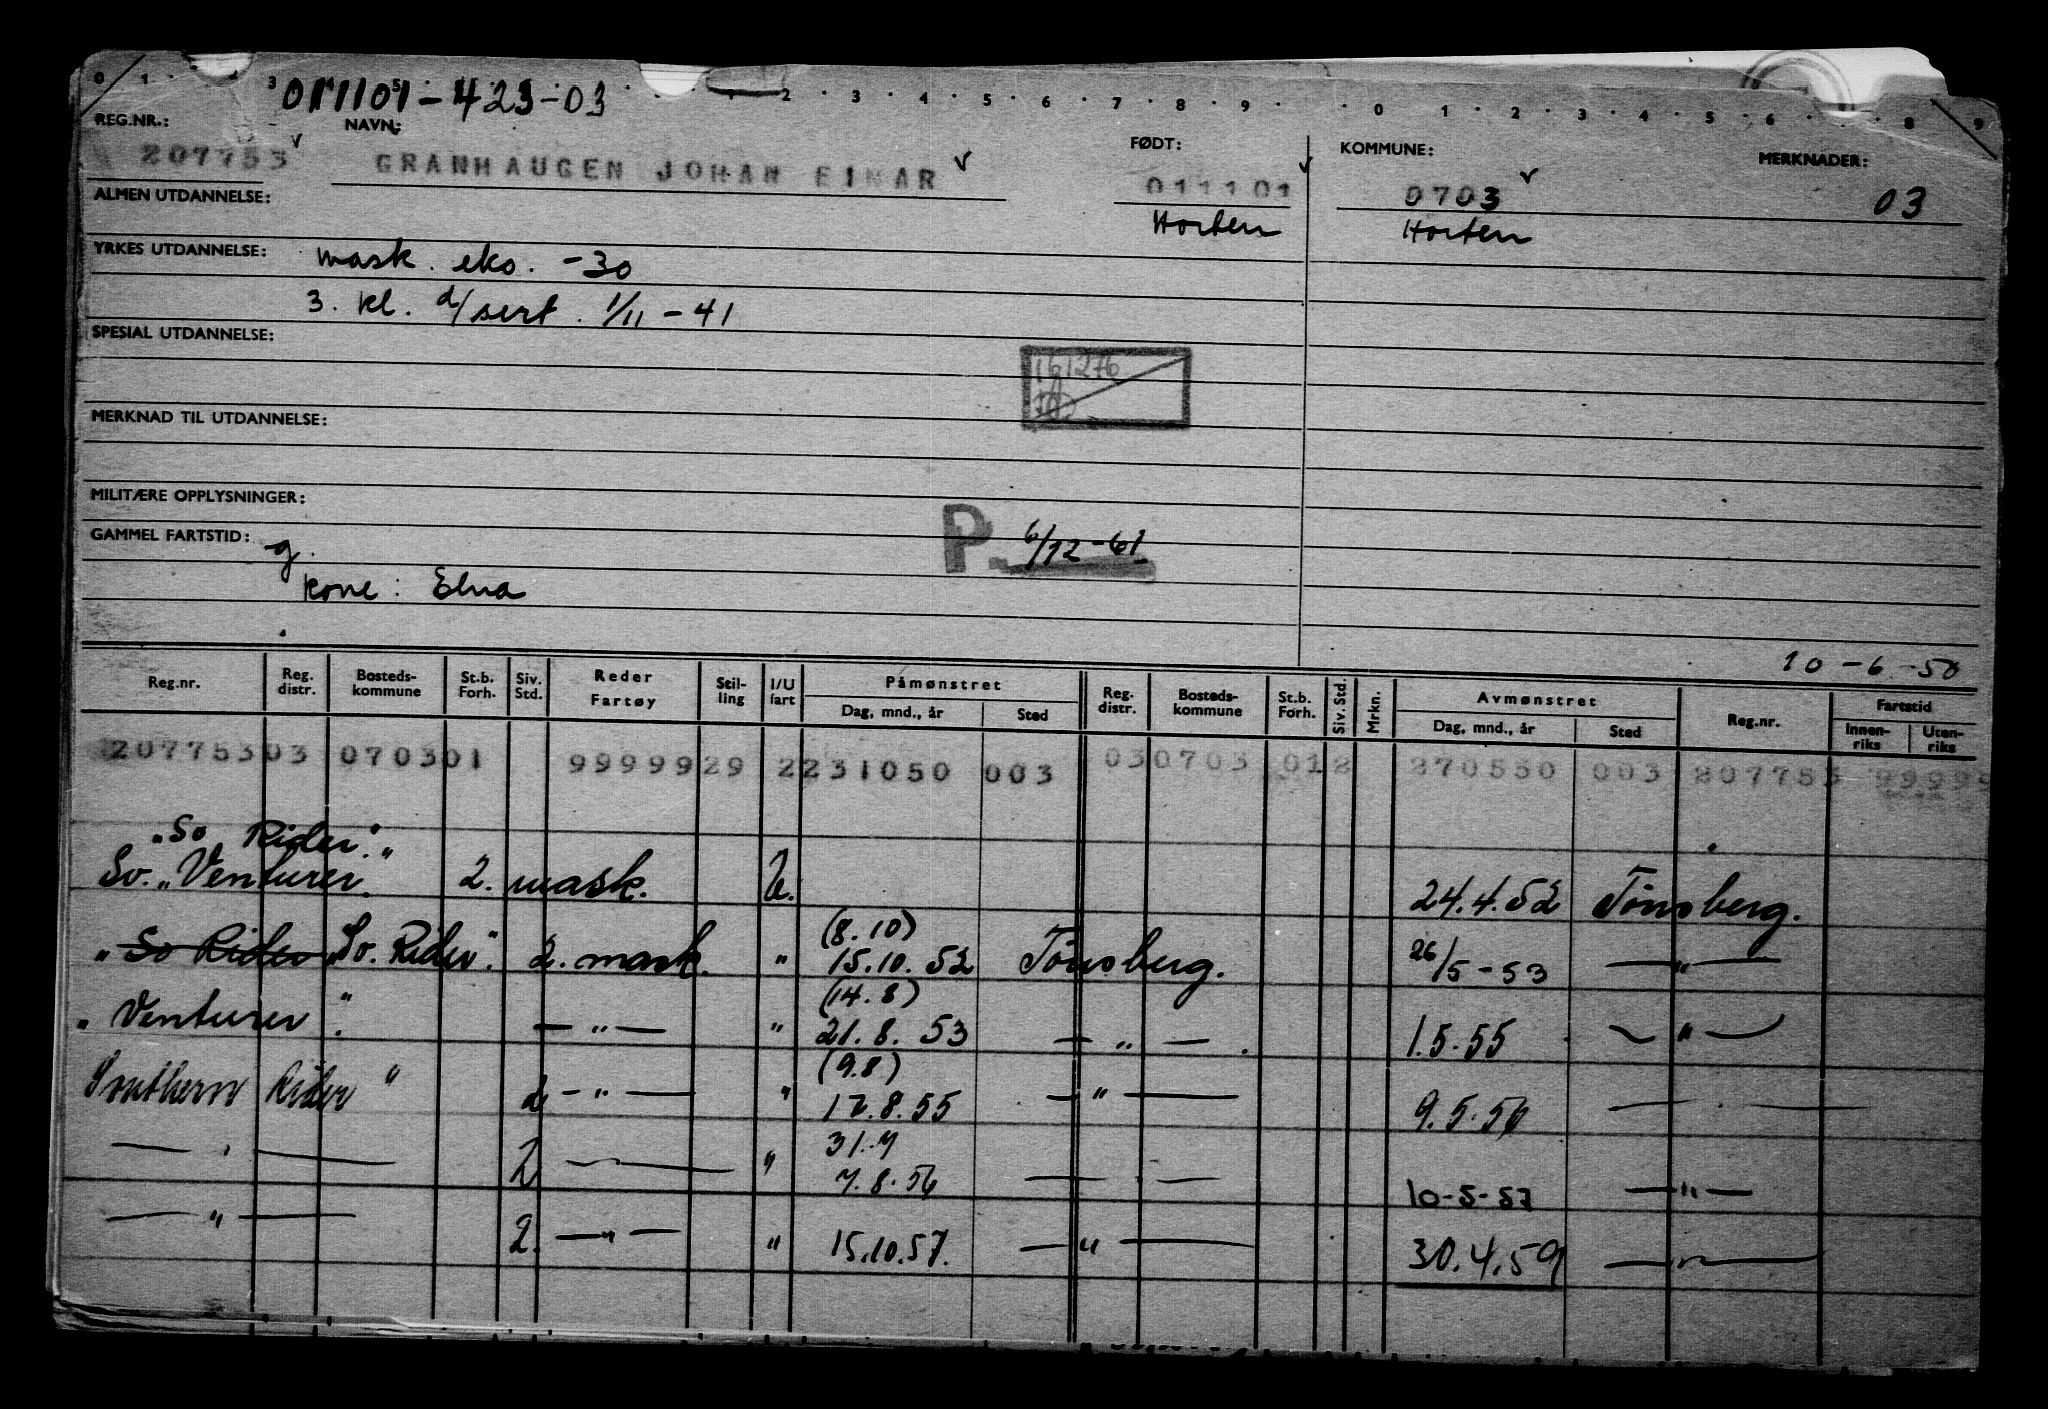 0 1 . . 4 3 5 . . . 1 2 . 3 . 4 . 5 . 6 . 7 . 8 . 9 . . . 0 . 1 . 2 . 3 . 4 . 5 . 6 . . . 8 . 9
011101-423-03
REG.NR.: NAVN: FØDT: KOMMUNE: MERKNADER:
207753 GRANHAUGEN JOHAN EINAR 011101 0703 03
ALMEN UTDANNELSE: Horten Horten
YRKES UTDANNELSE: mask. eks. -30
3. kl. d/sert. 1/11-41
SPESIAL UTDANNELSE:
161276
MERKNAD TIL UTDANNELSE:
MILITÆRE OPPLYSNINGER:
GAMMEL FARTSTID: g. P. 6/12-61
kone: Elna
10-6-50
Reg.nr. Reg. distr. Bosteds-kommune St.b. Forh. Siv. Std. Reder Fartøy Stil-ling I/U fart Påmønstret Dag, mnd., år Sted Reg. distr. Bosteds-kommune St.b. Forh. Siv. Std. Mrkn. Avmønstret Dag, mnd., år Sted Reg.nr. Fartstid Innen-riks Uten-riks
207753 03 0703 01 99999 29 2 231050 003 03 0703 01 2 270550 003 207753 99999
"So Rider."
So. "Venturer." 2. mask. U. 24.4.52 Tønsberg.
(8.10)
"So Rider "So. Rider". 2. mask. " 15.10.52 Tønsberg. 26/5-53 — " —
(14.8)
"Venturer". — " — " 21.8.53 — " — . 1.5.55 — " —
(9.8)
Southern Rider" 2 — " — " 12.8.55 — " — 9.5.56 — " —
31.7
— " — 2 — — " 7.8.56 — — 10-5-57 — " —
— " — 2. — " — " 15.10.57. — " — 30.4.59 — " —